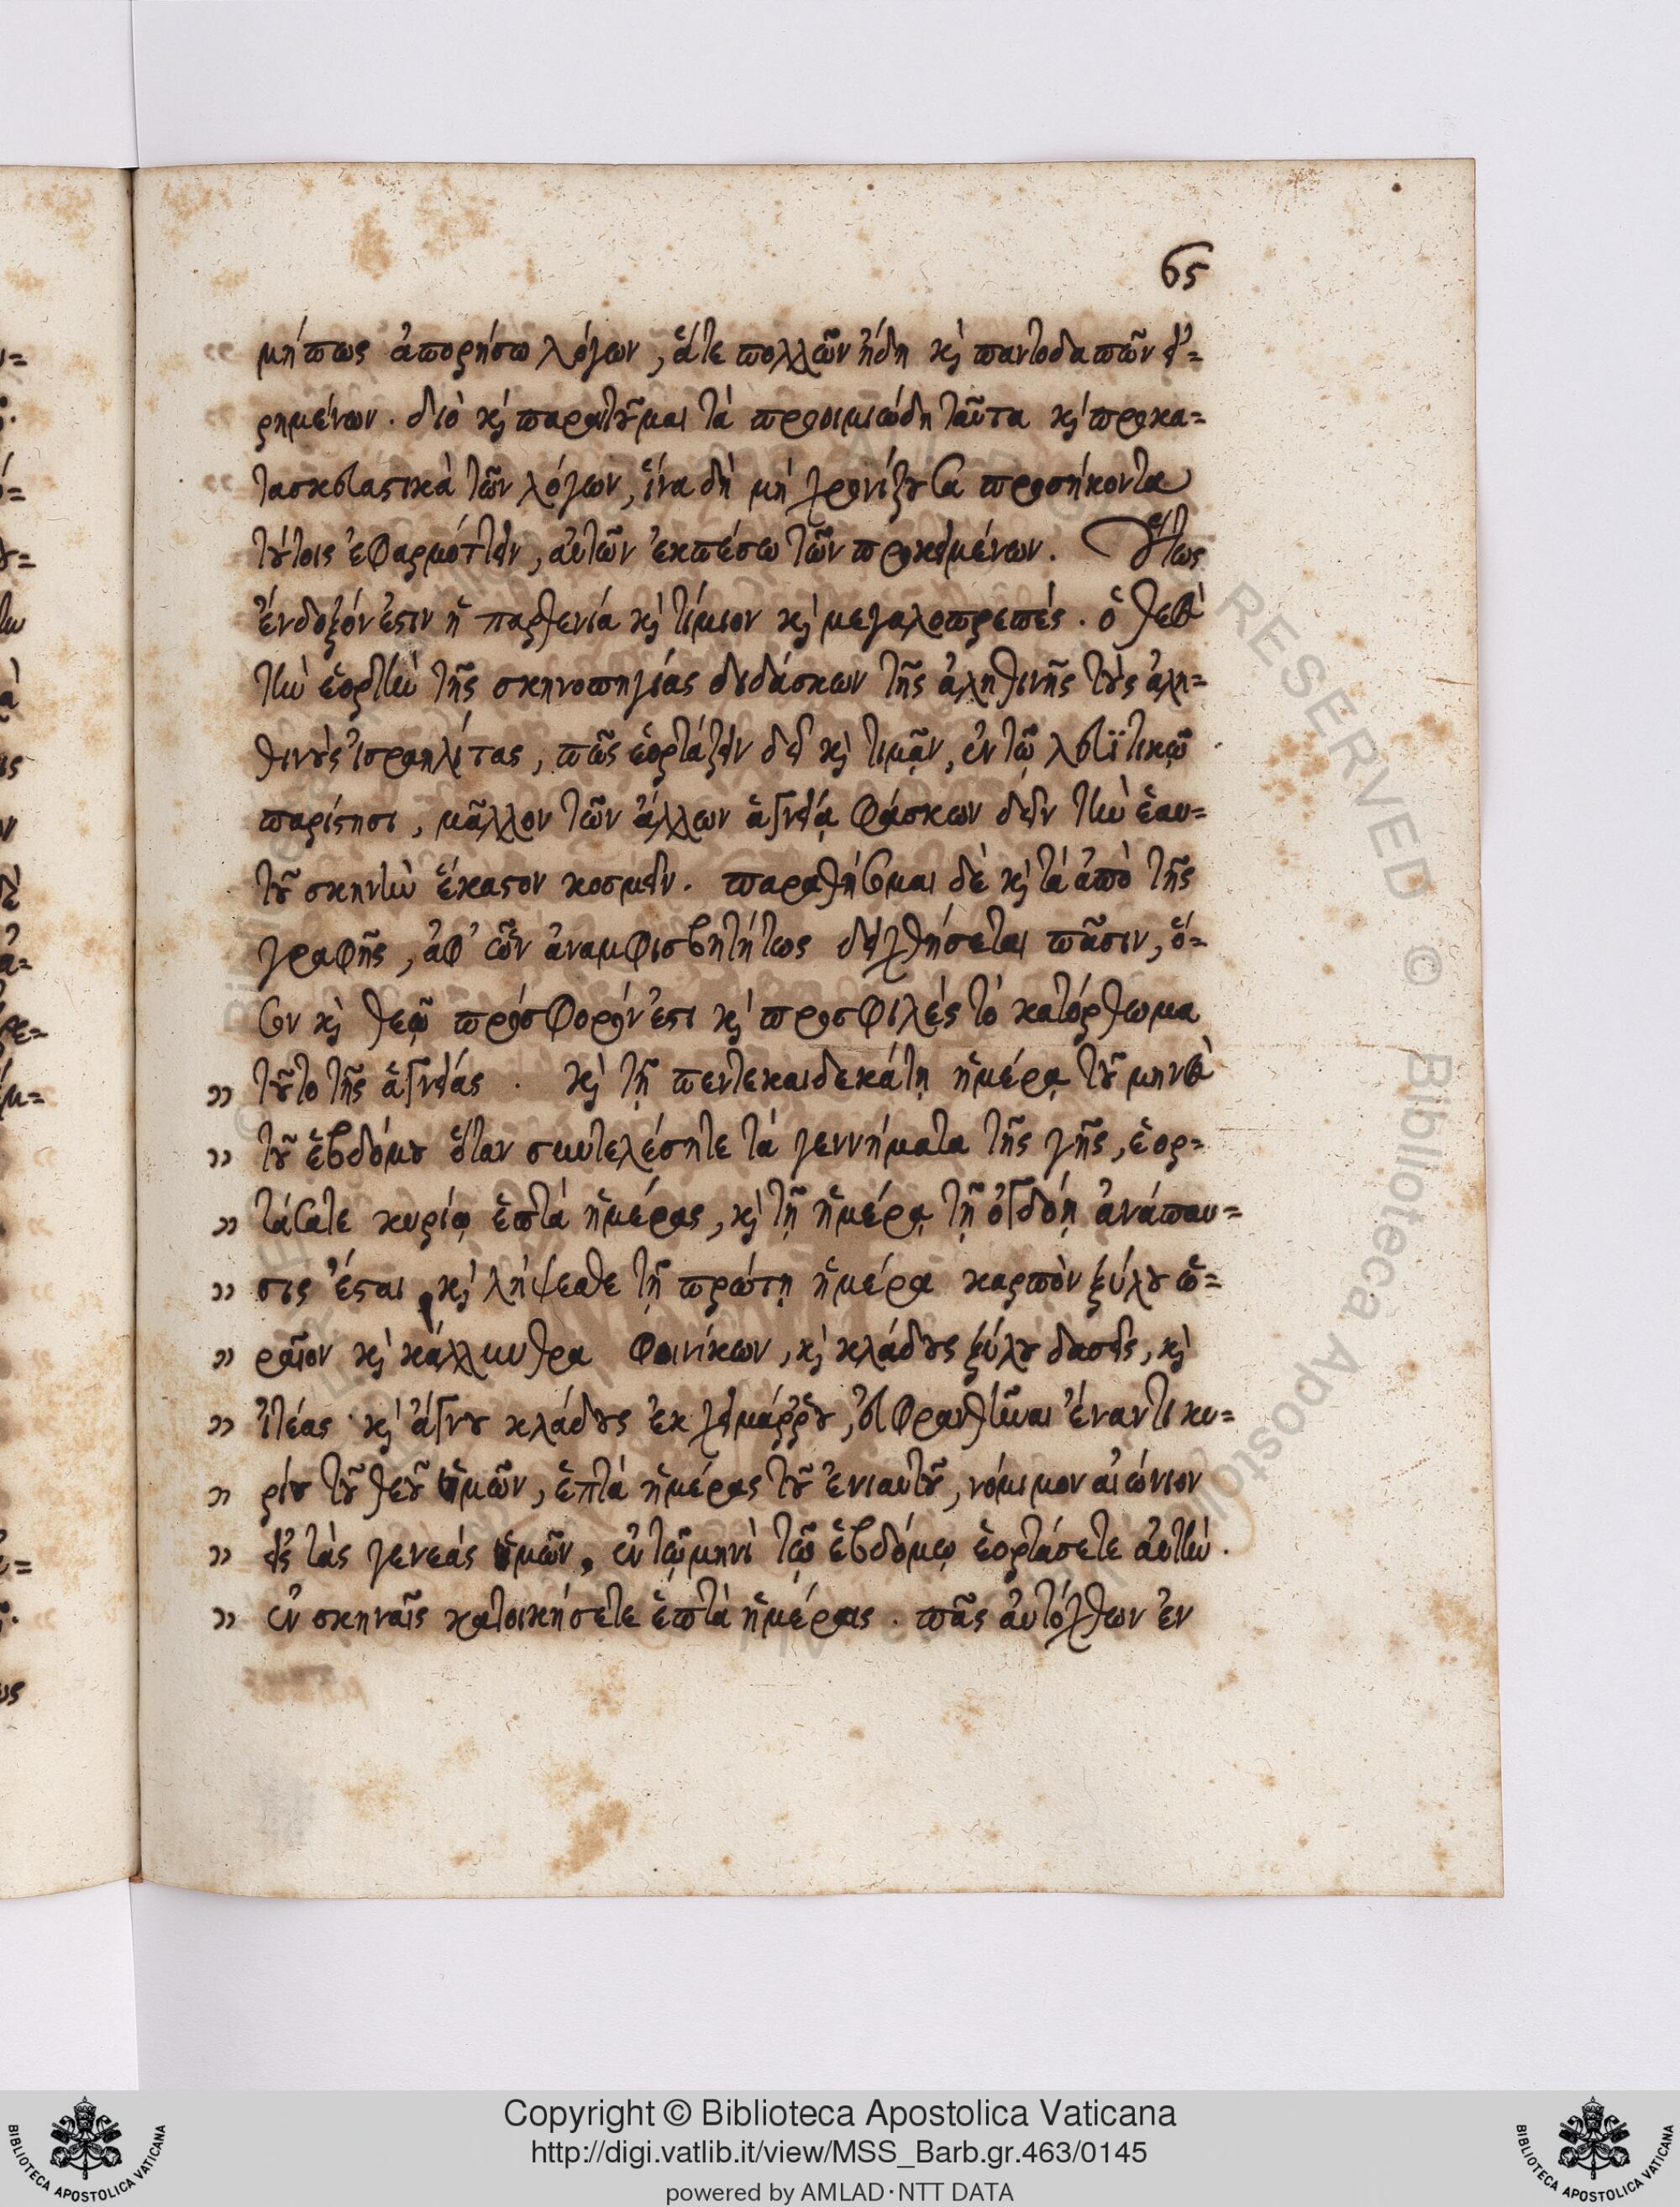 65
μήπως ἀπορήσω λόγων, ἅτε πολλῶν ἤδη κὶ παντοδαπῶν εἰ=
ρημένων. διὸ κὶ παραιτοῦμαι τὰ προοιμιώδη ταῦτα κὶ προκα=
τασκευαστικὰ τῶν λόγων, ἵνα δὴ μὴ χρονίζουσα προσήκοντα
τούτοις ἐφαρμόττειν, αὐτῶν ἐκπέσω τῶν προκειμένων. Οὕτως
ἔνδοξόν ἐστιν ἡ παρθενία κὶ τίμιον κὶ μεγαλοπρεπές. ὁ θεὸς
τὴν ἑορτὴν τῆς σκηνοπηγίας διδάσκων τῆς ἀληθινῆς τοὺς ἀλη=
θινοὺς ἰσραηλίτας, πῶς ἑορτάζειν δεῖ κὶ τιμᾷν, ἐν τῷ λευϊτικῷ
παρίστησι, μᾶλλον τῶν ἄλλων ἁγνείᾳ φάσκων δεῖν τὴν ἑαυ=
τοῦ σκηνὴν ἕκαστον κοσμεῖν. παραθήσομαι δὲ κὶ τὰ ἀπὸ τῆς
γραφῆς, ἀφ' ὧν ἀναμφισβητήτως δειχθήσεται πᾶσιν, ὅ=
σον κὶ θεῷ πρόσφορόν ἐστι κὶ προσφιλὲς τὸ κατόρθωμα
» τοῦτο τῆς ἁγνείας. κὶ τῇ πεντεκαιδεκάτῃ ἡμέρᾳ τοῦ μηνὸς
» τοῦ ἑβδόμου ὅταν συντελέσητε τὰ γεννήματα τῆς γῆς, ἑορ=
» τάσατε κυρίῳ ἑπτὰ ἡμέρας, κὶ τῇ ἡμέρᾳ τῇ ὀγδόῃ ἀνάπαυ=
» σις ἔσται, κὶ λήψεσθε τῇ πρώτῃ ἡμέρᾳ καρπὸν ξύλου ὡ=
» ραῖον κὶ κάλλυνθρα φοινίκων, κὶ κλάδους ξύλου δασεῖς, κὶ
» ἰτέας κὶ ἄγνου κλάδους ἐκ χειμάῤῥου, εὐφρανθῆναι ἔναντι κυ=
» ρίου τοῦ θεοῦ ἡμῶν, ἑπτὰ ἡμέρας τοῦ ἐνιαυτοῦ, νόμιμον αἰώνιον
» εἰς τὰς γενεὰς ὑμῶν, ἐν τῷ μηνὶ τῷ ἑβδόμῳ ἑορτάσετε αὐτήν.
» ἐν σκηναῖς κατοικήσετε ἑπτὰ ἡμέρας. πᾶς αὐτόχθων ἐν
Copyright © Biblioteca Apostolica Vaticana
http://digi.vatlib.it/view/MSS_Barb.gr.463/0145
powered by AMLAD·NTT DATA
BIBLIOTECA APOSTOLICA VATICANA
BIBLIOTECA APOSTOLICA VATICANA